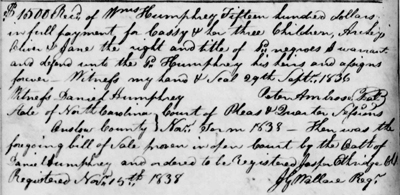 $1500 Recd of Wm Humphrey Fifteen hundred dollars
in full payment for Cassy & her three Children, Archey
Oliver & Jane the right and title of Sd negroes I warrant
and defend unto the Sd Humphrey his heirs and asigns
forever - Witness my hand & Seal 29th Septr 1836
Witness Daniel Humphrey Peter Ambrose Seal
State of North Carolina Court of Pleas & Quarter Sessions
Onslow County Novr Term 1838 - Then was the
foregoing bill of Sale proven in open Court by the Oath of
Daniel Humphrey and ordered to be Registered Jasper Etheridge Clk
Registered Novr 15th 1838 J G Wallace Regr